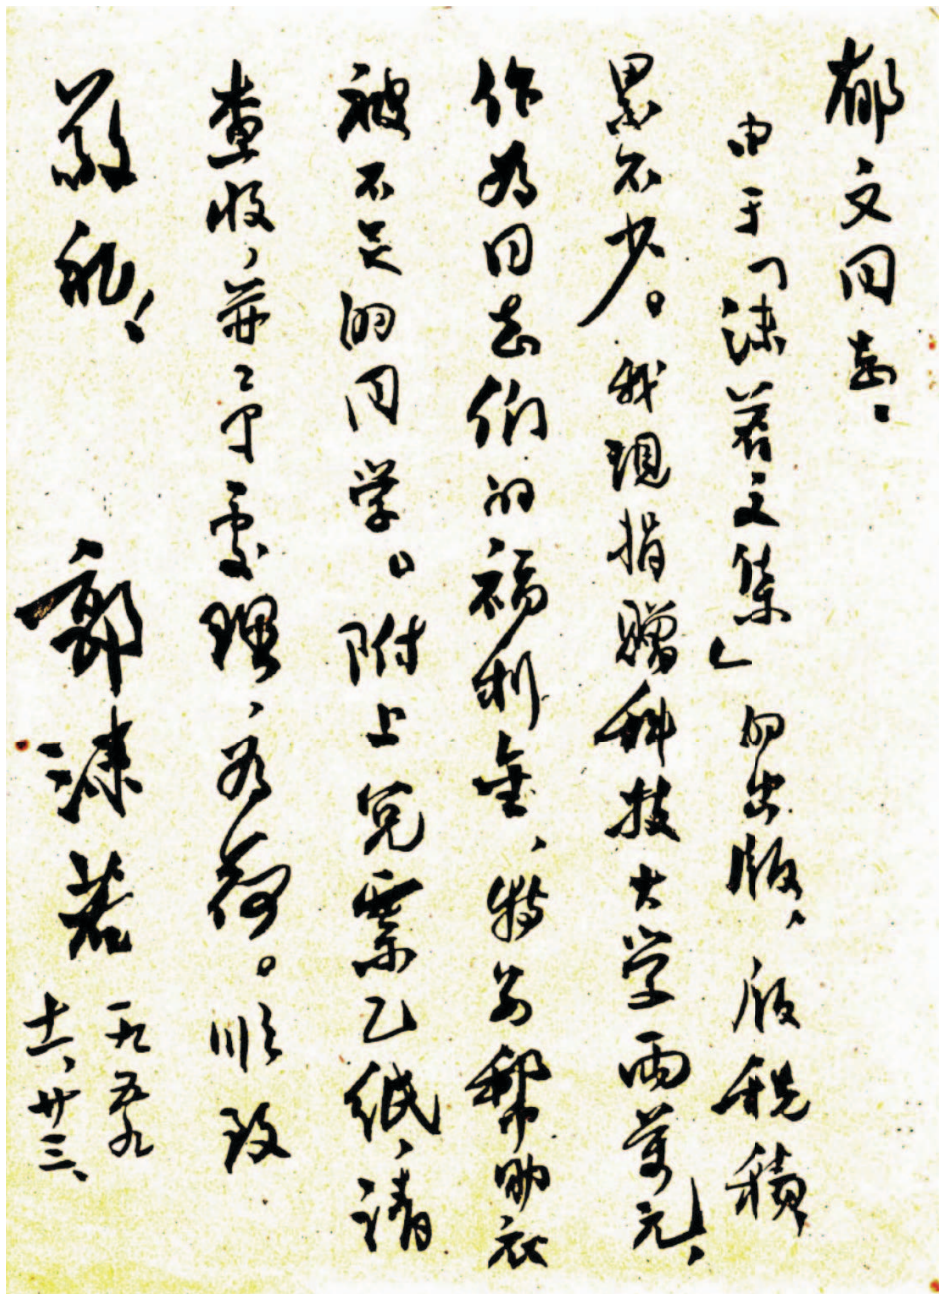 郁文同志：
由于「沫若文集」的出版，版税积
累不少。我现捐赠科技大学两万元，
作为同志们的福利金、特别帮助衣
被不足的同学。附上兑票乙纸，请
查收，并予处理，为荷。顺致
敬礼！
郭沫若
一九五九
十一、廿三、